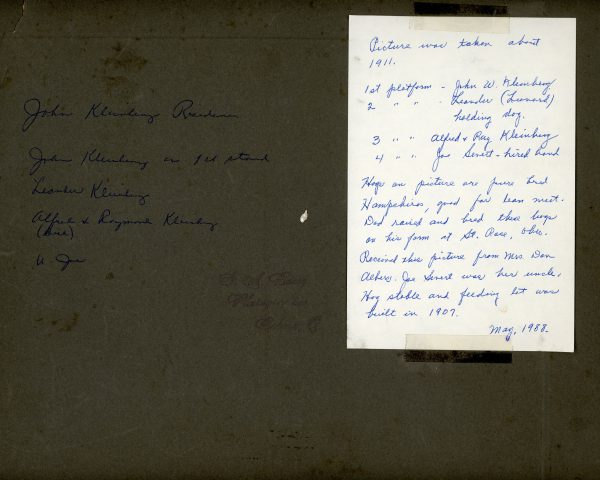 John Kleinberg Residence
John Kleinberg on 1st stand
Leander Kleinberg
Alfred & Raymond Kleinberg
U. Joe
Picture was taken about
1911.
1st platform - John W. Kleinberg
2 " " - Leander (Leonard)
holding dog.
3 " " Alfred & Ray Kleinberg
4 " " Joe Severt - hired hand
Hogs on picture are pure bred
Hampshires, good for lean meat.
Dad raised and bred these hogs
on his farm at St. Rose, Ohio.
Received this picture from Mrs. Don
Albers. Joe Severt was her uncle.
Hog stable and feeding lot was
built in 1907.
May, 1988.